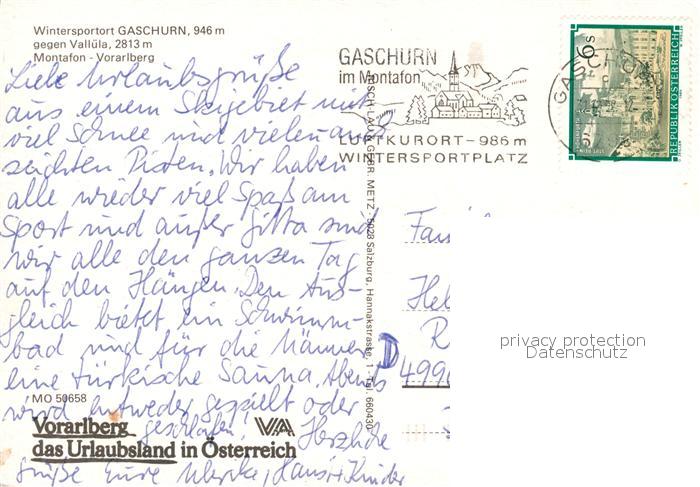 Wintersportort GASCHURN, 946 m
gegen Vallüla, 2813 m
Montafon - Vorarlberg
Liebe Urlaubsgrüße
aus einem Skigebiet mit
viel Schnee und vielen aus
zeichten Pisten. Wir haben
alle wieder viel Spaß am
Sport und außer Jitta sind
wir alle den ganzen Tag
auf den Hängen. Den Aus-
gleich bietet ein Schwimm-
bad und für die Männer
eine türkische Sauna. Abends
wird entweder gespielt oder
geschlafen! Herzliche
Grüße Eure Ulrike, Hans + Kinder
MO 50658
Vorarlberg VA
das Urlaubsland in Österreich
GASCHURN
im Montafon
LUFTKURORT - 986 m
WINTERSPORTPLATZ
GEBR. METZ 5023 Salzburg, Hannakstrasse 1 - Tel. 660430
6 S
REPUBLIK ÖSTERREICH
Fam
Hel
R
D 499
privacy protection
Datenschutz